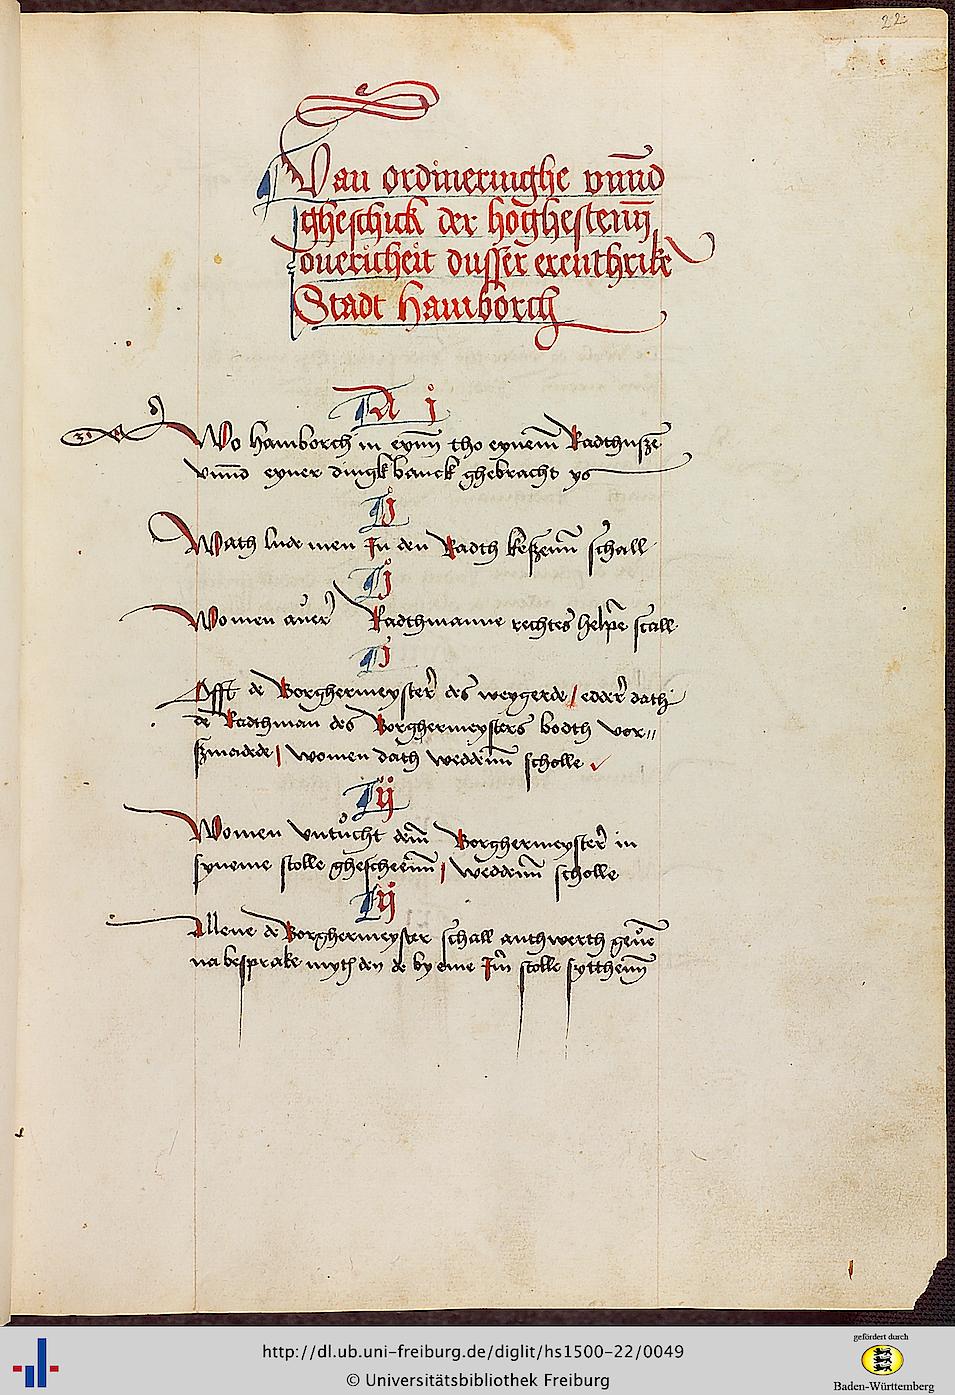 22
Van ordineringhe vnnd
gheschick der hoghestenn
ouericheit dusser erenthrike
Stadt Hamborch
A j
Wo Hamborch in eynn tho eynem Radthusze
vnnd eyner dingk banck ghebracht ys
Wath lude men In den Radth keszenn schall
Women auer Radthmanne rechtes helpe scall
Efft de Borghermeyster des weygerde / edder dath
de Radthman des Borghermeysters bodth vor//
szmadede / women dath weddenn scholle
Women vntucht dem Borghermeyster in
syneme stolle gescheenn / weddenn scholle
Allene de Borghermeyster schall anthwerth geuen
na besprake myth den de by eme Im stolle sytthenn
http://dl.ub.uni-freiburg.de/diglit/hs1500-22/0049
© Universitätsbibliothek Freiburg
gefördert durch
Baden-Württemberg